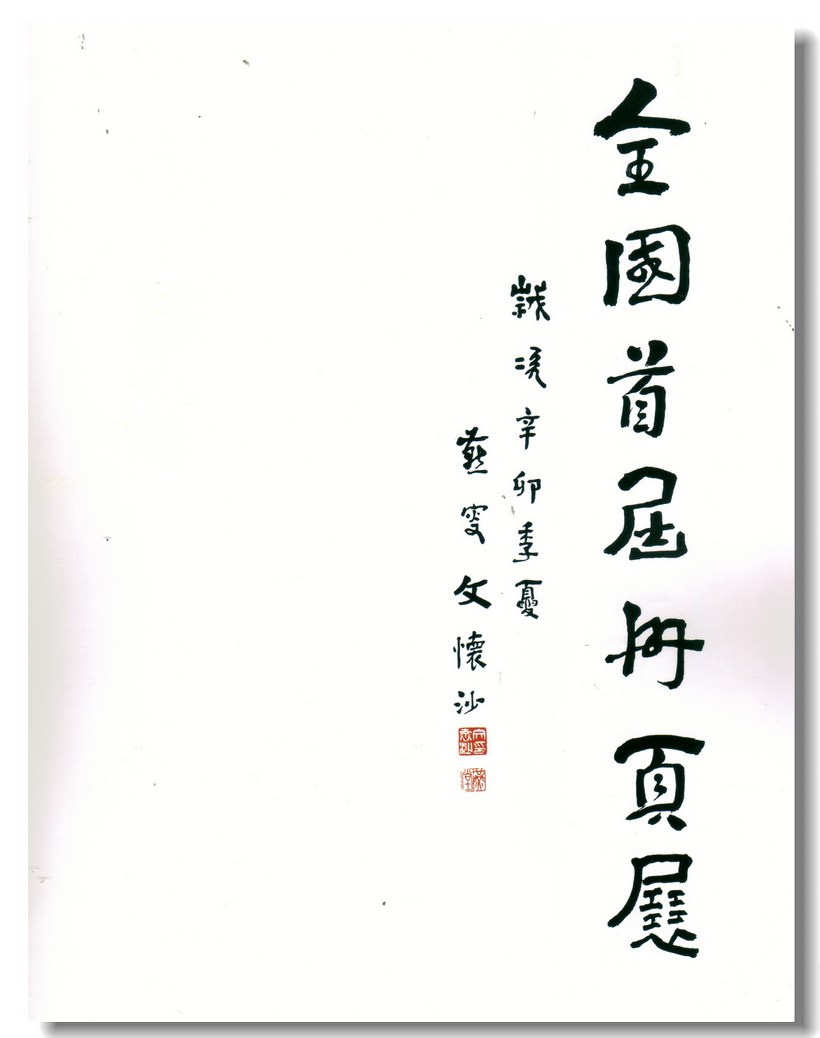 全國首屆冊頁展
歲次辛卯季夏
燕叟文懷沙